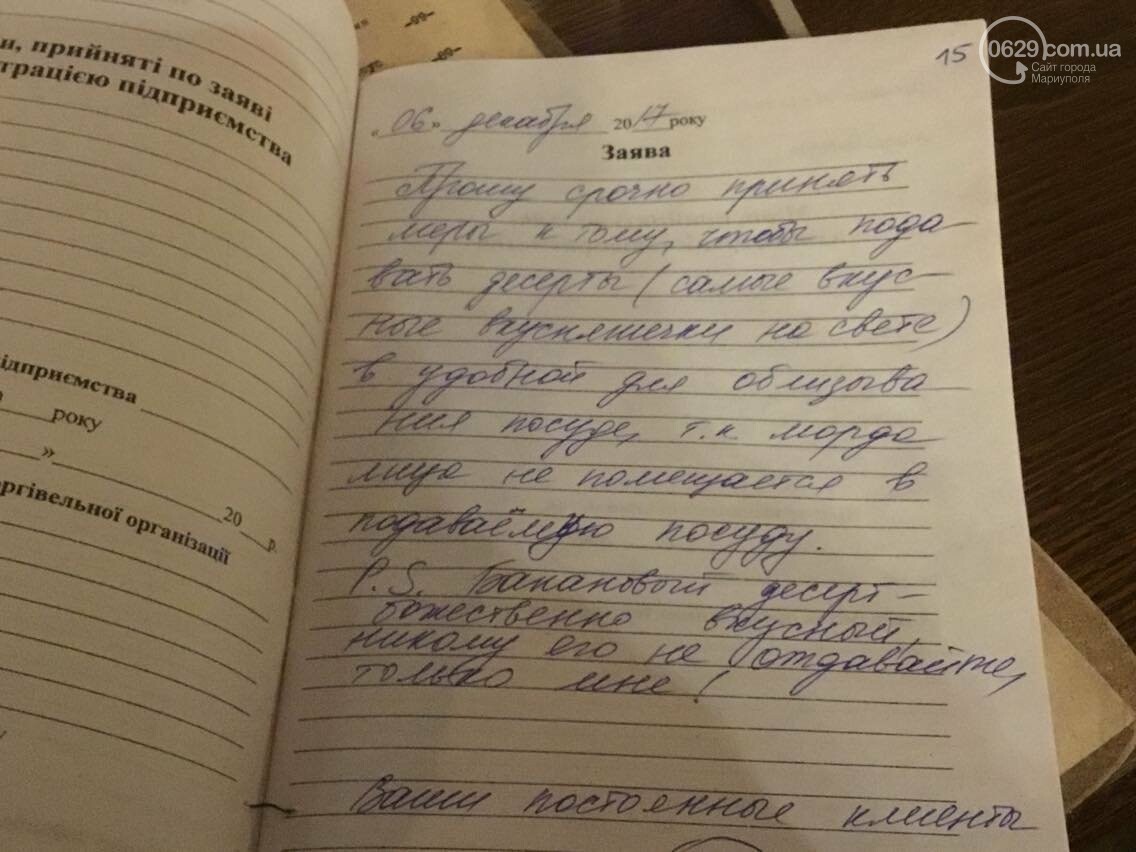 и, прийняті по заяві
трацією підприємства
ідприємства
року
»
20 р.
оргівельної організації
15
0629.com.ua
Сайт города
Мариуполя
"06" декабря 2017 року
Заява
Прошу срочно принять
меры к тому, чтобы пода-
вать десерты (самые вкус-
ные вкусняшечки на свете)
в удобной для облизыва
ния посуде, т.к морда
лица не помещается в
подаваёмую посуду.
P.S. Банановый десерт-
божественно вкусный,
никому его не отдавайте,
только мне!
Ваши постоянные клиенты